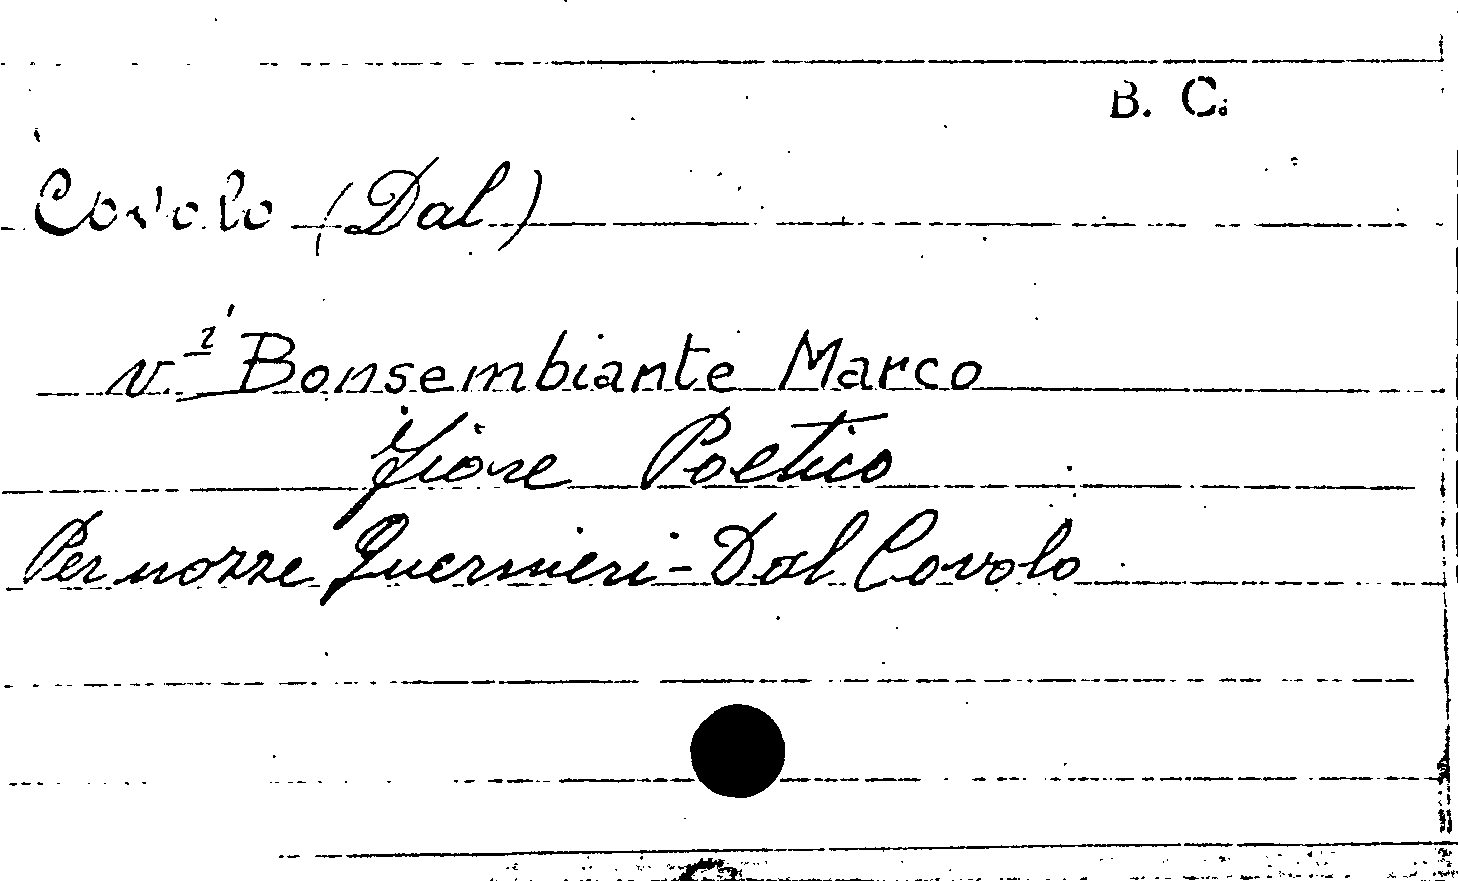 B. C.
Covolo (Dal)
v. Bonsembiante Marco
Fiore Poetico
Per nozze Guernieri-Dal Covolo